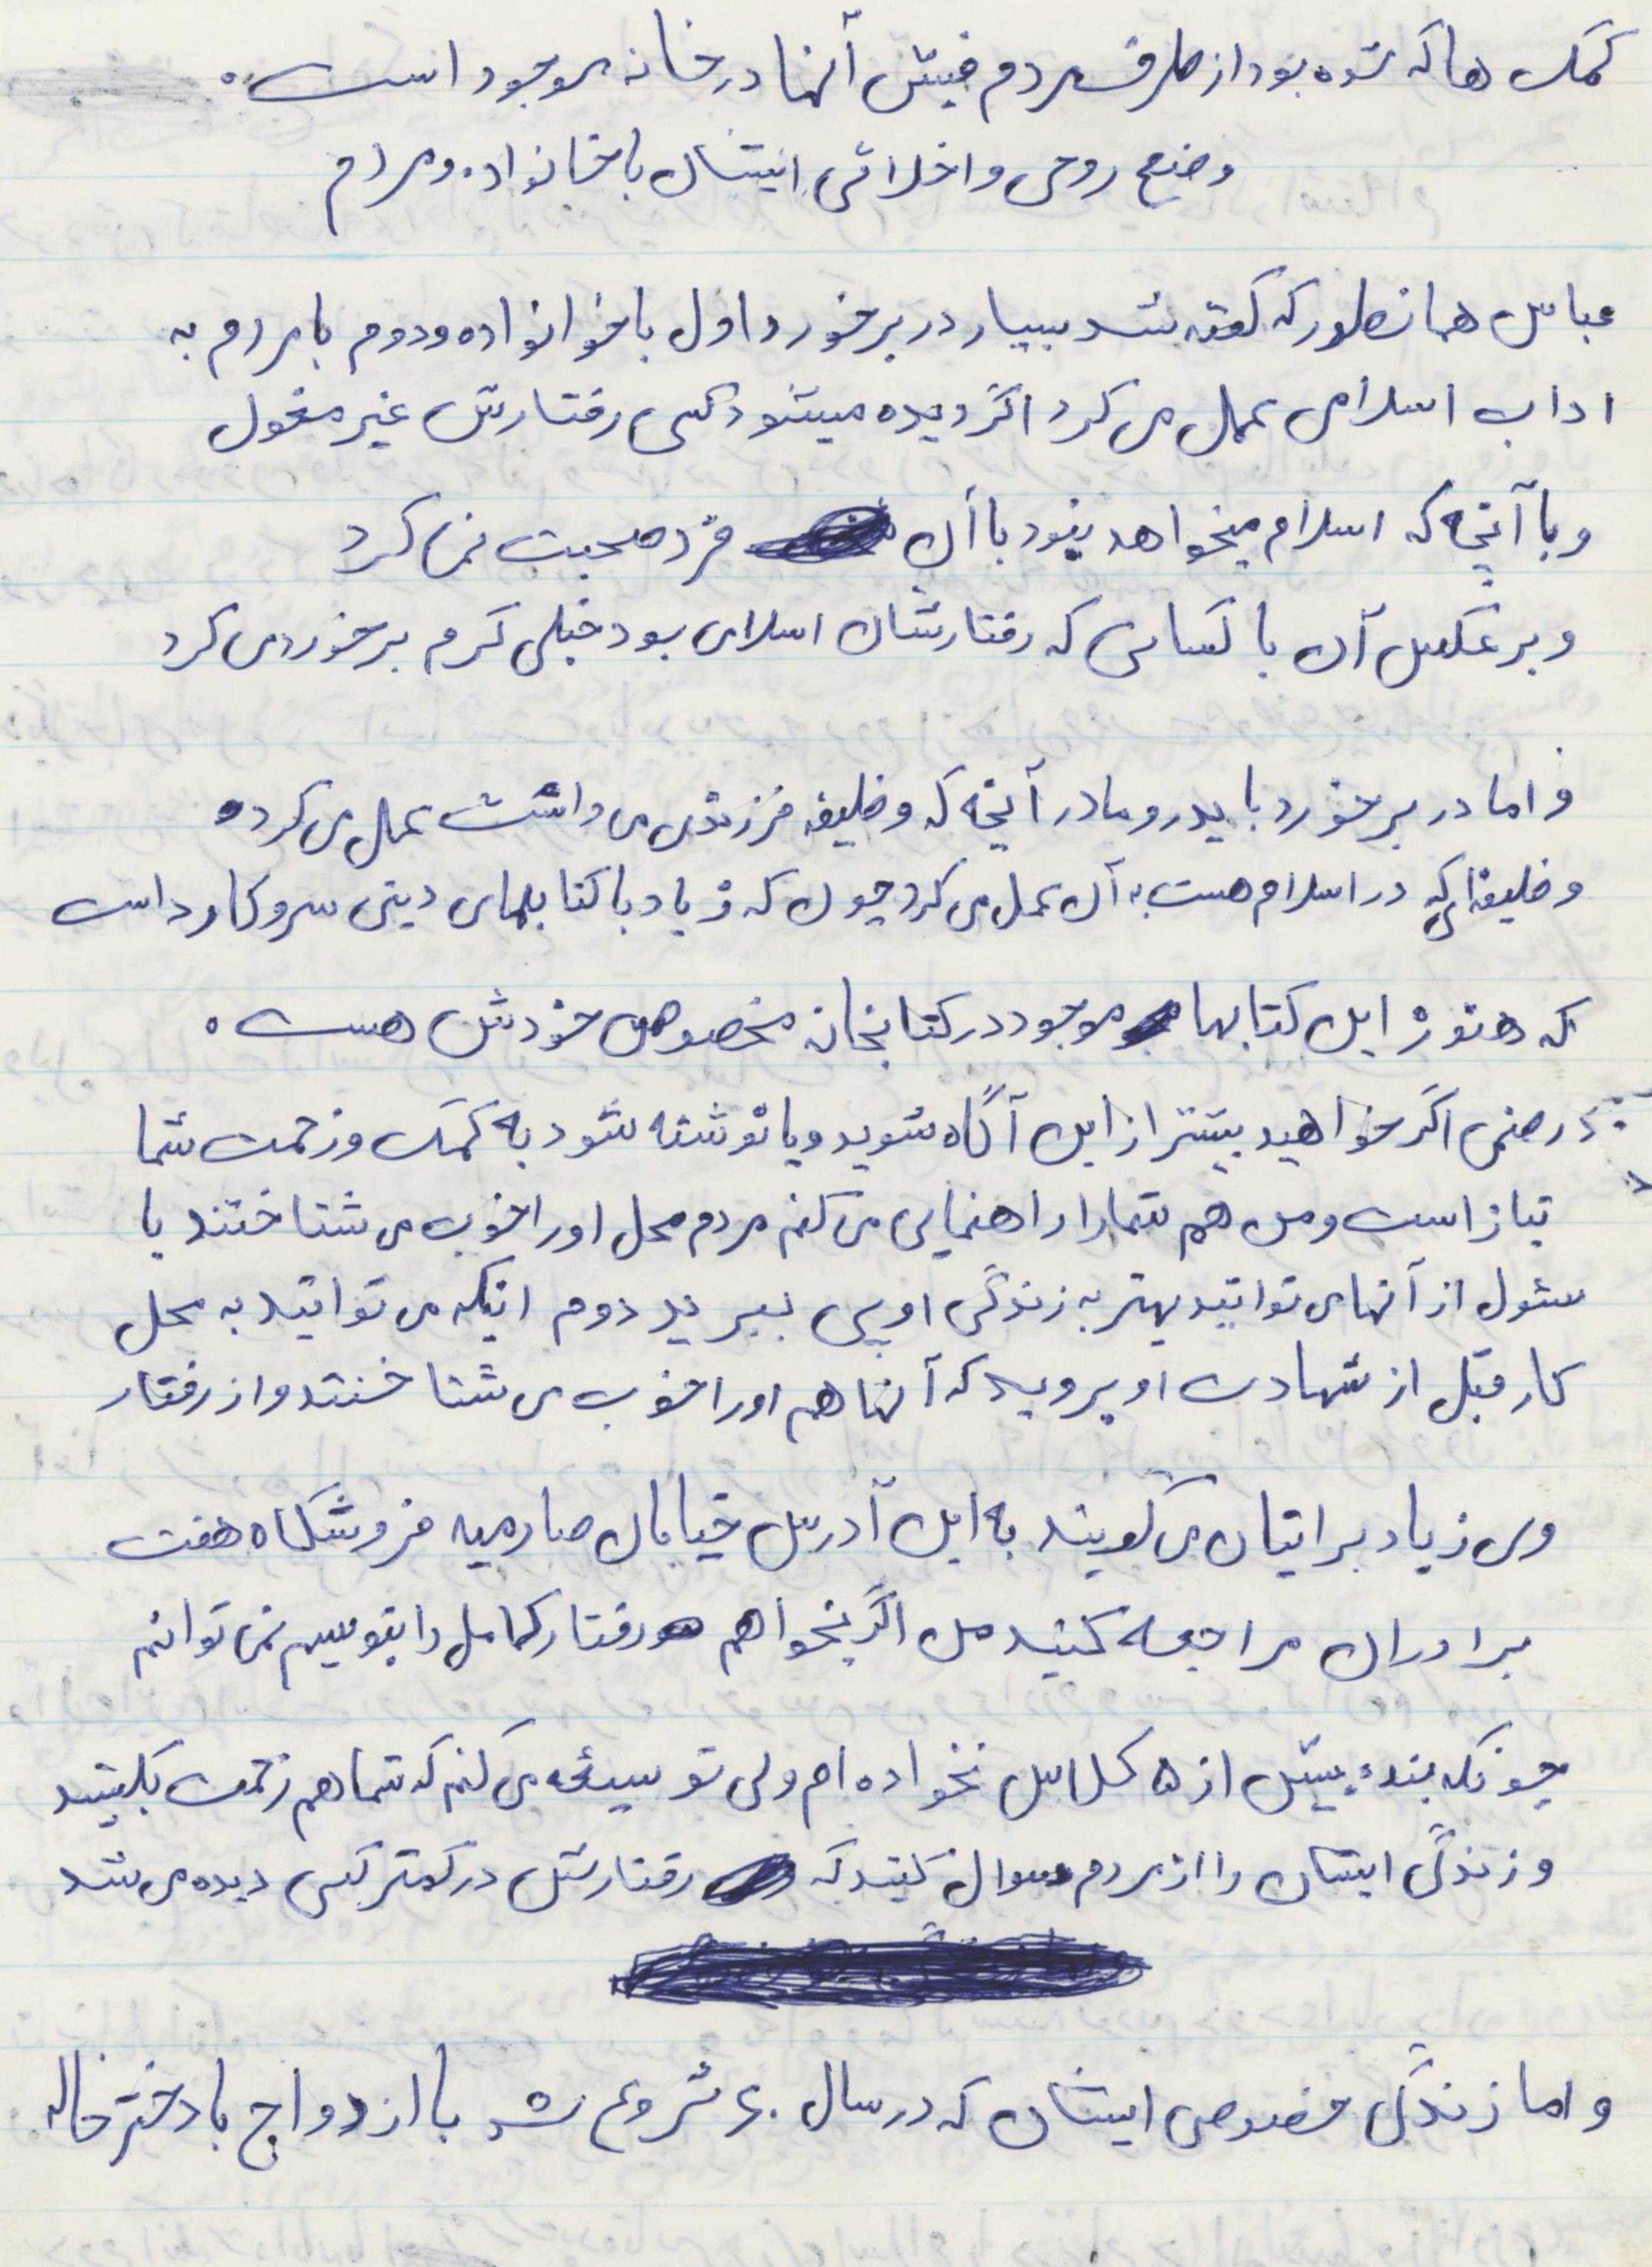 کمک ها که شده بود از طرف مردم فیش آنها در خانه موجود است.
وضع روحی و اخلاقی ایشان با خانواده و مردم
عباس همانطور که گفته شد بسیار در برخورد اول با خوانواده و دوم با مردم به
اداب اسلامی عمل می کرد اگر دیده میشود کسی رفتارش غیر مغول
و با آنچه که اسلام میخواهد نبود با آن فرد صحبت نمی کرد
و بر عکس آن با کسانی که رفتارشان اسلامی بود خیلی گرم برخورد می کرد
و اما در برخورد با پدر و مادر آنچه که وظیفه فرزندی می داشت عمل می کرد.
وظیفه ای که در اسلام هست به آن عمل می کرد چون که زیاد با کتابهای دینی سروکار داست
که هنوز این کتابها موجود در کتابخانه مخصوص خودش هست.
در ضمن اگر خواهید بیشتر از این آگاه شوید و یا نوشته شود به کمک و زحمت شما
نیاز است و من هم شمارا راهنمایی می کنم مردم محل اورا خوب می شناختند با
سئول از آنها می توانید بهتر به زندگی او پی ببرید دوم اینکه می توانید به محل
کار قبل از شهادت او بروید که آنها هم اورا خوب می شناختند و از رفتار
وی زیاد برایتان می گویند به این آدرس خیابان صارمیه فروشگاه هفت
برادران مراجعه کنید من اگر بخواهم رفتار کامل را بنویسم نمی توانم
چونکه بنده بیش از ۵ کلاس نخواده ام ولی توسیعه می کنم که شما هم زحمت بکشید
و زندگی ایشان را از مردم سوال کنید که رفتارش در کمتر کسی دیده می شد
و اما زندگی خصوصی ایشان که در سال ۶۰ شروع شد با ازدواج با دختر خاله